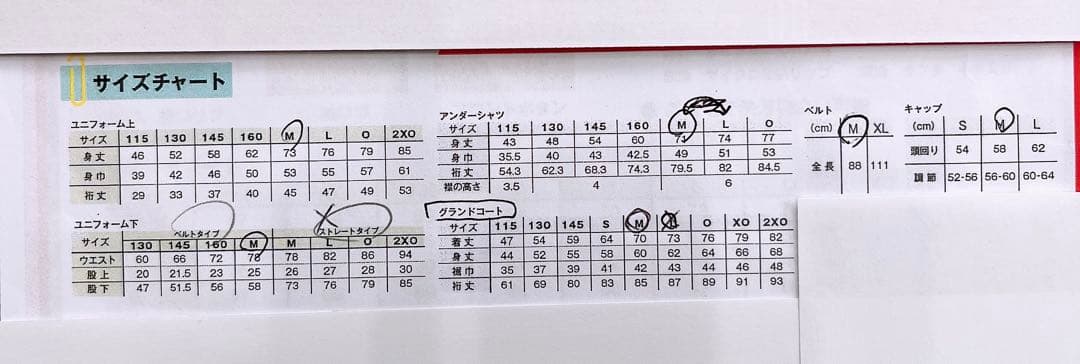 サイズチャート
ユニフォーム上
サイズ 115 130 145 160 M L O 2XO
身丈 46 52 58 62 73 76 79 85
身巾 39 42 46 50 53 55 57 61
裄丈 29 33 37 40 45 47 49 53
ユニフォーム下
ベルトタイプ ストレートタイプ
サイズ 130 145 160 M M L O 2XO
ウエスト 60 66 72 78 78 82 86 94
股上 20 21.5 23 25 26 27 28 30
股下 47 51.5 56 58 73 76 79 85
アンダーシャツ
サイズ 115 130 145 160 M L O
身丈 43 48 54 60 71 74 77
身巾 35.5 40 43 42.5 49 51 53
裄丈 54.3 62.3 68.3 74.3 79.5 82 84.5
襟の高さ 3.5 4 6
グランドコート
サイズ 115 130 145 S M L O XO 2XO
着丈 47 54 59 64 70 73 76 79 82
身丈 44 52 55 58 60 62 64 66 68
裾巾 35 37 39 41 42 43 44 46 48
裄丈 61 69 80 83 85 87 89 91 93
ベルト
(cm) M XL
全長 88 111
キャップ
(cm) S M L
頭回り 54 58 62
調節 52-56 56-60 60-64